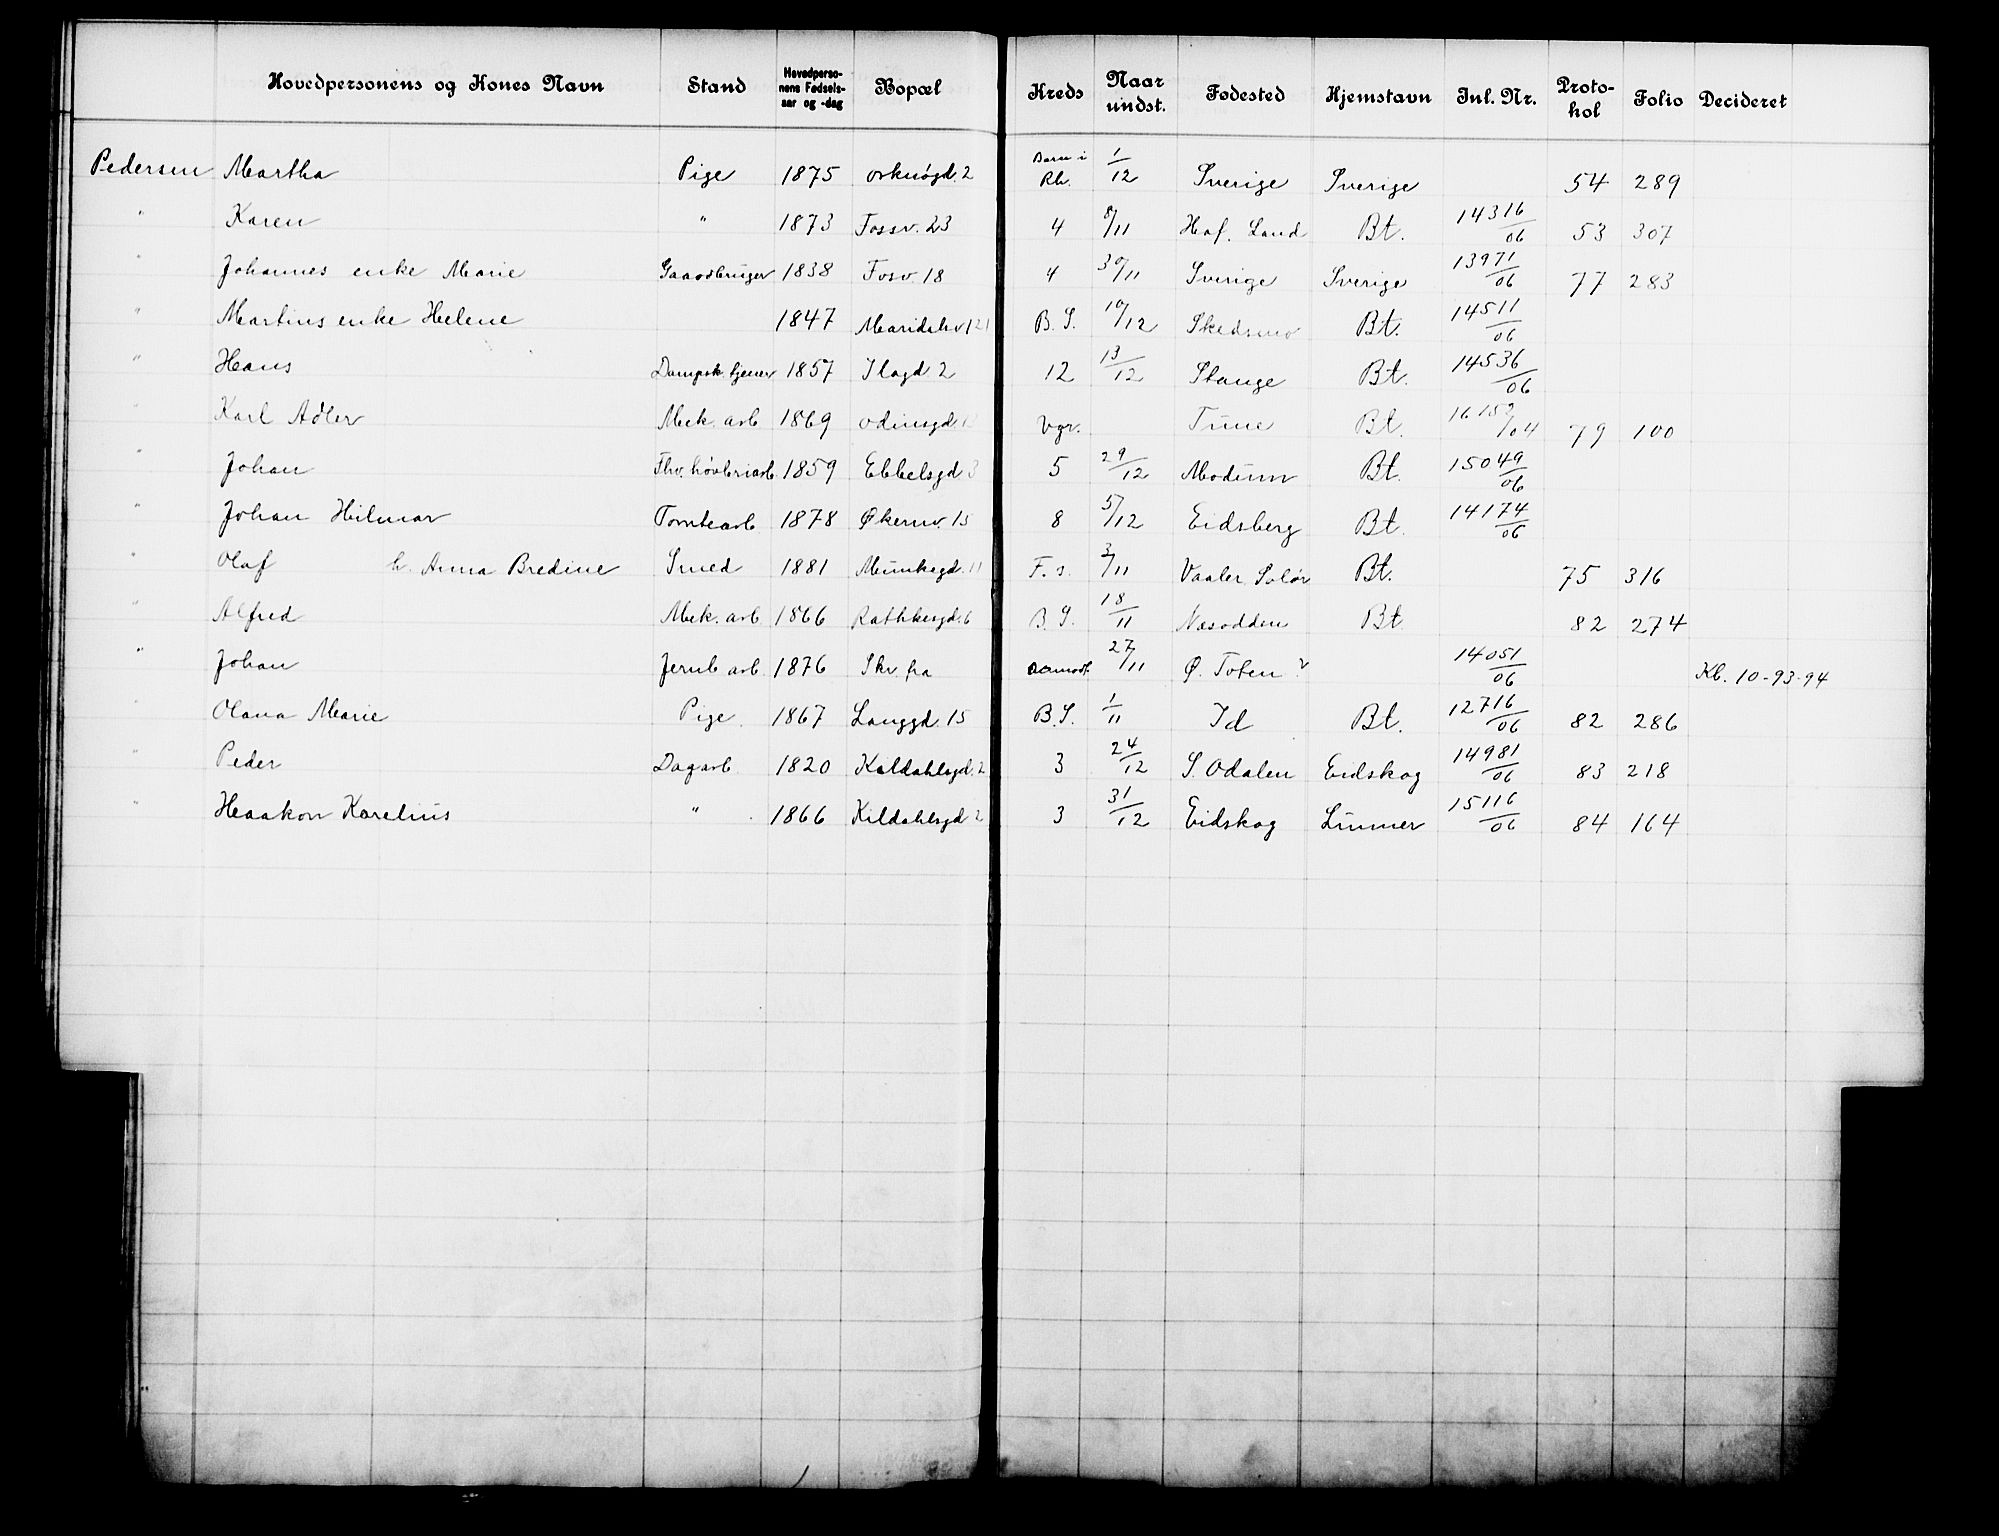 Hovedpersonens og Kones Navn Stand Hovedpersonens Fødselsaar og -dag Bopæl Kreds Naar undst. Fødested Hjemstavn Inl. Nr. Protokol Folio Decideret
Pedersen Martha Pige 1875 Orknøgd. 2 Barn i Rh. 1/12 Sverige Sverige 54 289
" Karen " 1873 Fossv. 23 4 8/11 Hof. Land Bt. 14316/06 53 307
" Johannes enke Marie Gaardbruger 1838 Fosv. 18 4 30/11 Sverige Sverige 13971/06 77 283
" Martins enke Helene 1847 Maridalsv 121 B. S. 10/12 Skedsmo Bt. 14511/06
" Hans Dampsk. tjener 1857 Ilagd. 2 12 13/12 Stange Bt. 14536/06
" Karl Adler Mek. arb 1869 Odinsgd. Vgr. Tune Bt. 16159/04 79 100
" Johan Fhv. høvleriarb. 1859 Ebbelsgd 3 5 29/12 Modum Bt. 15049/06
" Johan Hilmar Tomtearb 1878 Økernv. 15 8 5/12 Eidsberg Bt. 14174/06
" Olaf h. Anna Bredine Smed 1881 Munkegd. 11 F. s. 3/11 Vaaler Solør Bt. 75 316
" Alfred Mek. arb 1866 Rathkesgd. 6 B. S. 18/11 Næsodden Bt 82 274
" Johan Jernb arb 1876 Skv. fra 27/11 Ø. Toten ? 14051/06 Kb. 10-93-94
" Olana Marie Pige 1867 Langgd. 15 B. S. 1/11 Id Bt. 12716/06 82 286
" Peder Dagarb 1820 Kildahlsgd. 2 3 24/12 S. Odalen Eidskog 14981/06 83 218
" Haakon Karelius " 1866 Kildahlsgd 2 3 31/12 Eidskog Lunner 15116/06 84 164